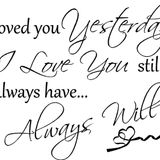 oved you Yesterda
I Love You still
lways have...
Always Will